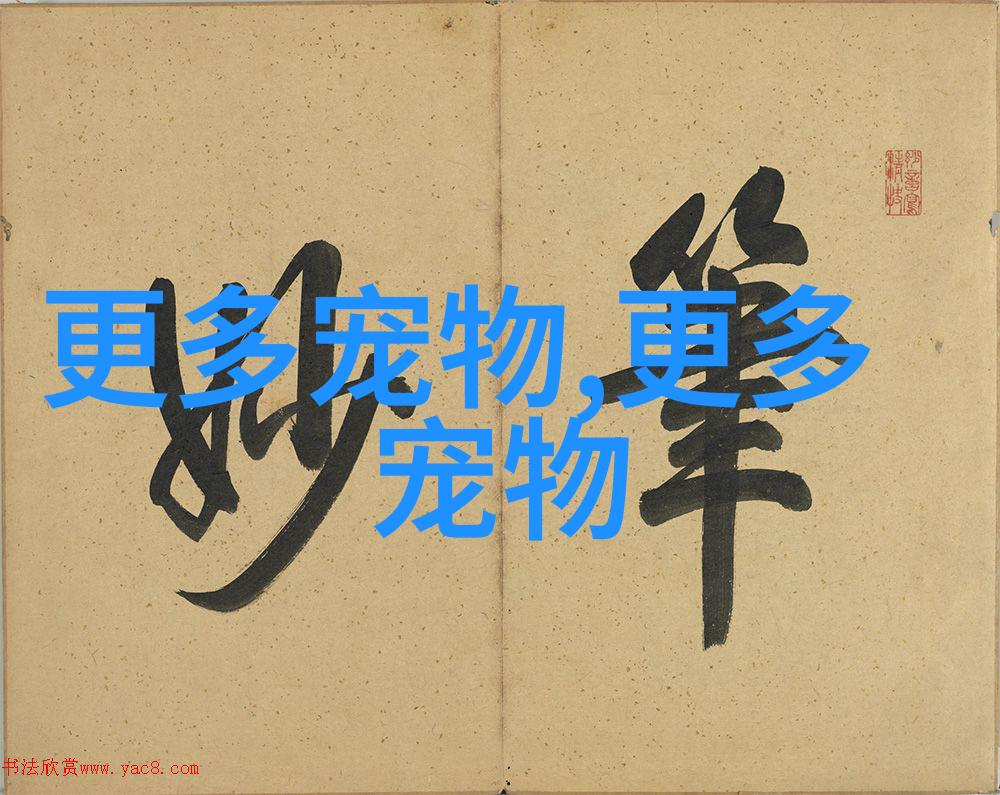 更多宠物,更多
宠物
筆妙
书法欣赏www.yac8.com